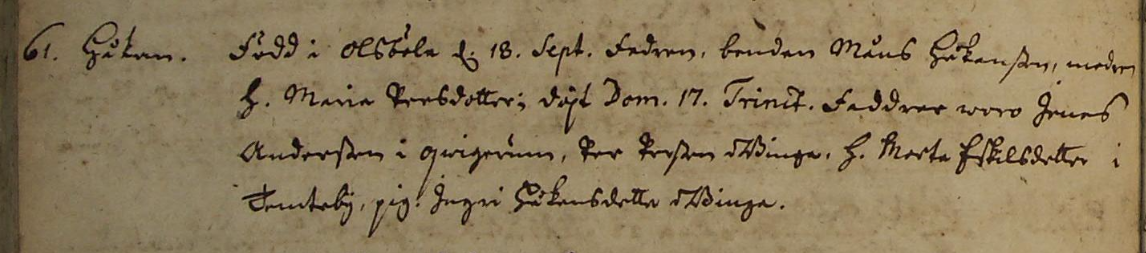 61. Håkan. Född i Olsböle d. 18. Sept. Fadren, bonden Måns Håkansson, modren
h. Maria Persdotter; döpt Dom. 17. Trinit. Faddrar woro Jonas
Andersson i Qwigerum, Per Persson i Winga, h. Marta Eskilsdotter i
Tomteby, pig. Ingri Håkansdotter i Winga.